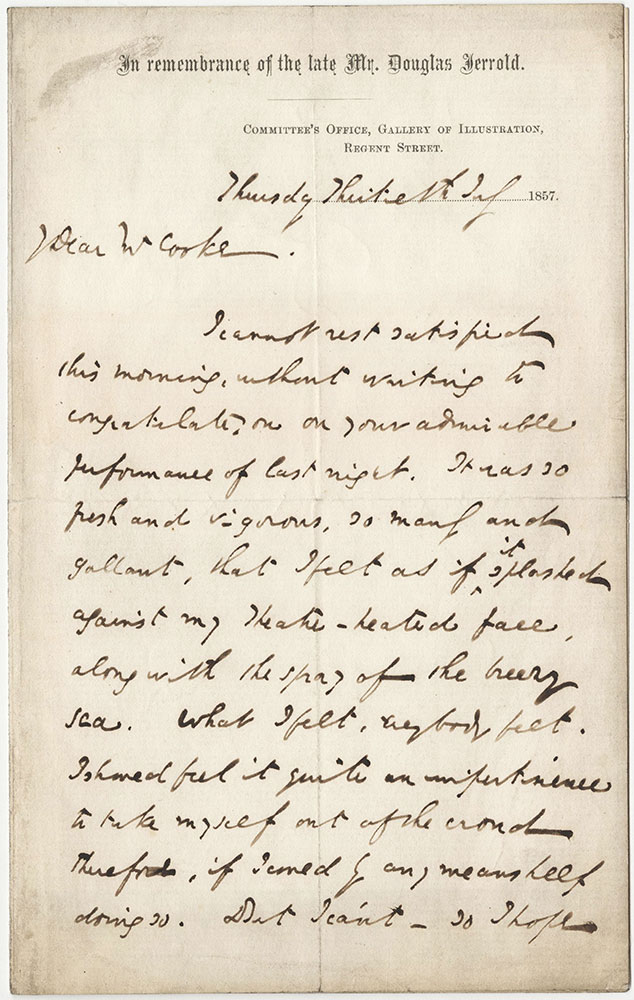 In remembrance of the late Mr. Douglas Jerrold.
COMMITTEE'S OFFICE, GALLERY OF ILLUSTRATION,
REGENT STREET.
Thursday Thirtieth July 1857.
Dear Mr Cooke.
I cannot rest satisfied
this morning, without writing to
congratulate you on your admirable
performance of last night. It was so
fresh and vigorous, so manly and
gallant, that I felt as if it splashed
against my Theatre-heated face,
along with the spray of the breezy
sea. What I felt, everybody felt.
I should feel it quite an impertinence
to take myself out of the crowd
therefore, if I could by any means help
doing so. But I can't - so I hope